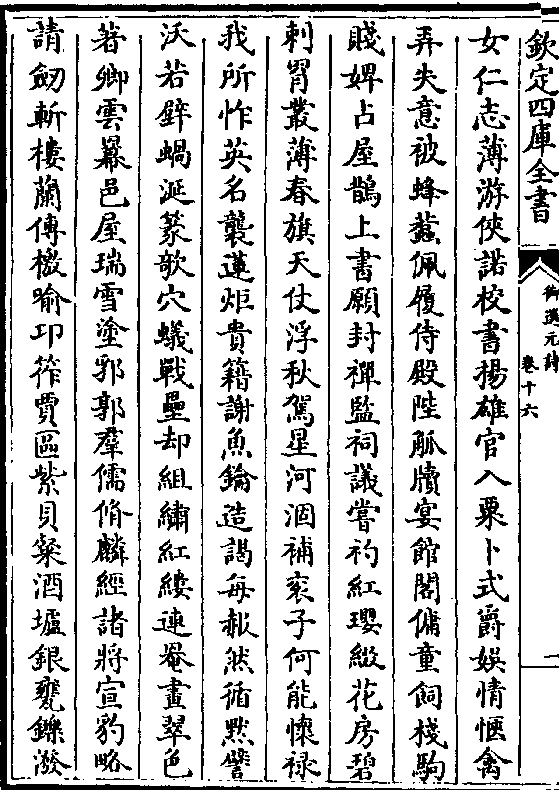 欽定四庫全書
御選元詩
卷十六
女仁志薄游俠諾校書揚雄官入粟卜式爵娛情愜禽
弄失意被蜂蠆佩履侍殿陛觚牘宴館閣傭童飼棧駒
賤婢占屋鵲上書願封禪監祠議嘗礿紅瓔緞花房碧
刺罥叢薄春旗天仗浮秋駕星河涸補衮子何能懷禄
我所怍英名襲蓮炬貴籍謝魚鑰造謁每赧然循默譬
沃若辭蝸涎篆欹穴蟻戰壘却組繡紅縷連菴畫翠色
著卿雲羃邑屋瑞雪塗郛郭羣儒脩麟經諸將宣豹略
請劒斬樓蘭傳檄喻邛筰賈區紫貝粲酒壚銀甕鑠潑